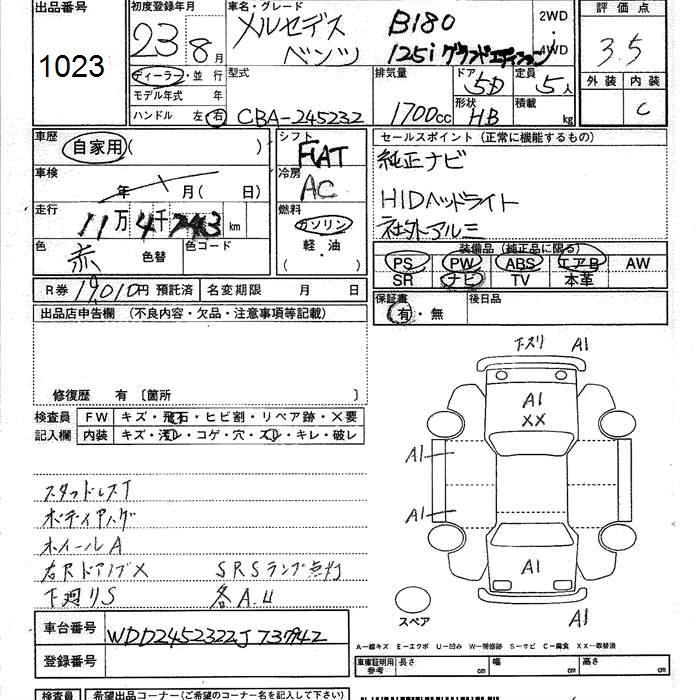 出品番号
1023
初度登録年月
23 8月
車名・グレード
メルセデス
ベンツ
B180
125i グランドエディション
2WD
・
4WD
評価点
3.5
外装 内装
C
ディーラー・並行
モデル年式 年
ハンドル 左 右
型式
CBA-245232
排気量
1700cc
ドア
5D
形状
HB
定員
5人
積載
kg
車歴
自家用( )
車検
年 月( 日)
走行
11万4千743km
色
赤
色替
色コード
R券 19,010円 預託済
名変期限 月 日
シフト
FAT
冷房
AC
燃料
ガソリン
・
軽・油
( )
セールスポイント (正常に機能するもの)
純正ナビ
HIDヘッドライト
社外アルミ
装備品 (純正品に限る)
PS PW ABS エアB AW
SR ナビ TV 本革
保証書
有・無
後日品
出品店申告欄 (不良内容・欠品・注意事項等記載)
修復歴 有 〔箇所 〕
検査員
記入欄
FW キズ・飛石・ヒビ割・リペア跡・X要
内装 キズ・汚レ・コゲ・穴・スレ・キレ・破レ
スタッドレスT
ボディアハゲ
ホイールA
右RドアノブX SRSランプ点灯
下廻りS 各A.U
車台番号
WDD2452322J737942
登録番号
下ズリ A1
A1
XX
A1
A1
A1
A1
スペア
A─線キズ E─エクボ U─凹み W─補修跡 S─サビ C─腐食 XX─取替済
車庫証明用
参考
長さ cm 幅 cm 高さ cm
検査員
希望出品コーナー(ご希望のコーナー名を記入して下さい)